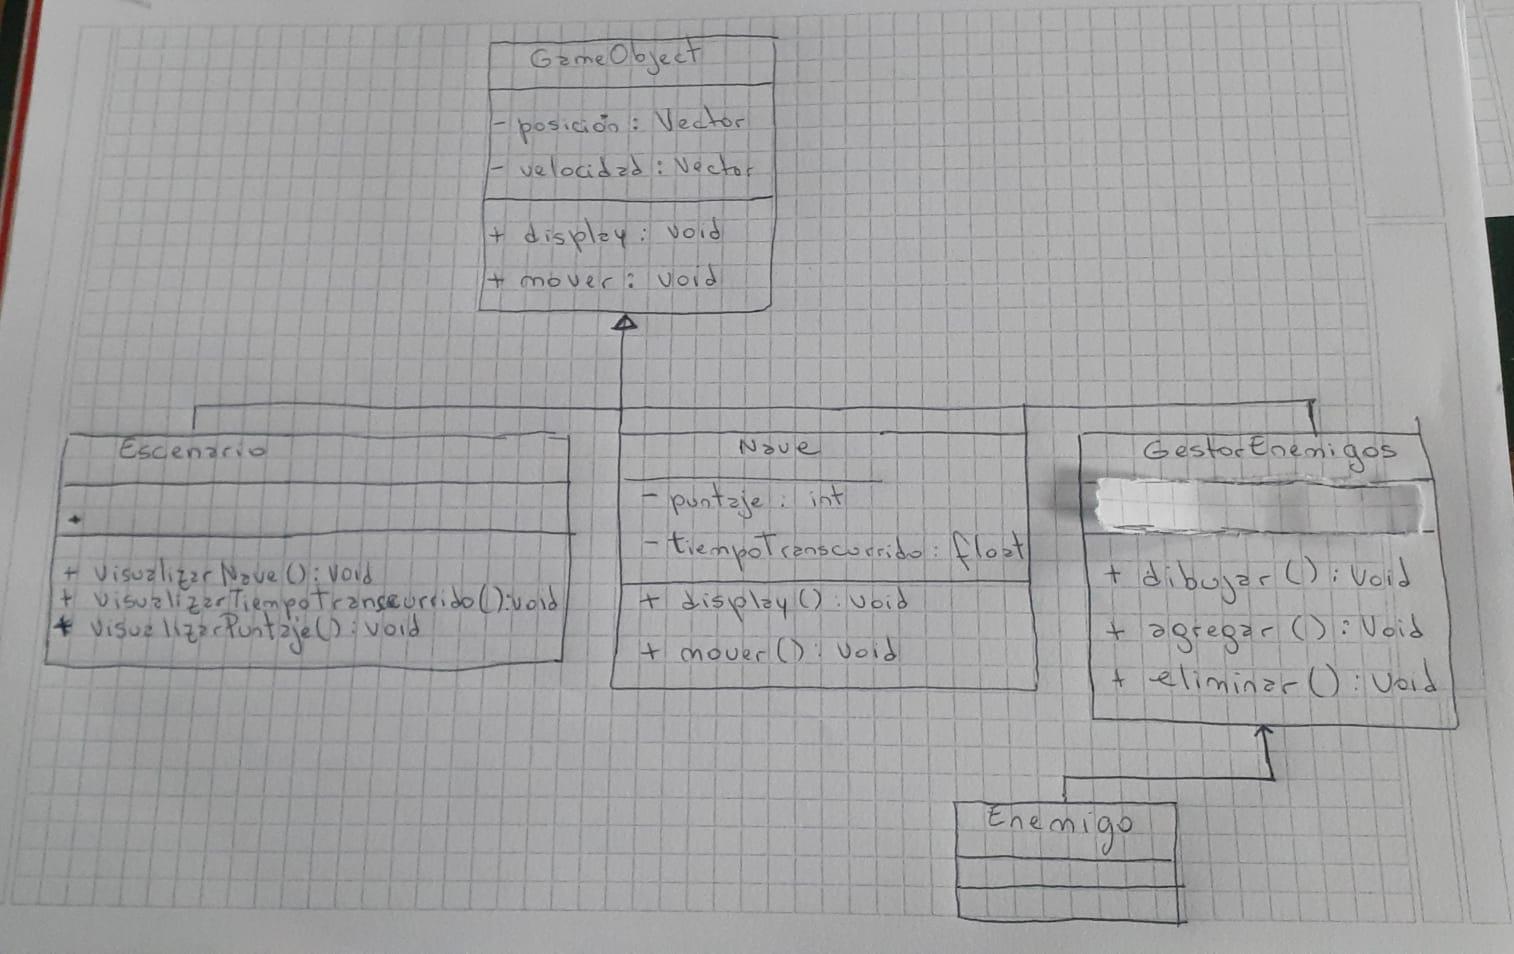 GameObject
- posición : Vector
- velocidad : Vector
+ display : void
+ mover : void
Escenario
+ visualizarNave() : void
+ visualizarTiempoTranscurrido():void
+ visualizarPuntaje() : void
Nave
- puntaje : int
- tiempoTranscurrido : float
+ display() : void
+ mover() : void
GestorEnemigos
+ dibujar() : void
+ agregar() : void
+ eliminar() : void
Enemigo